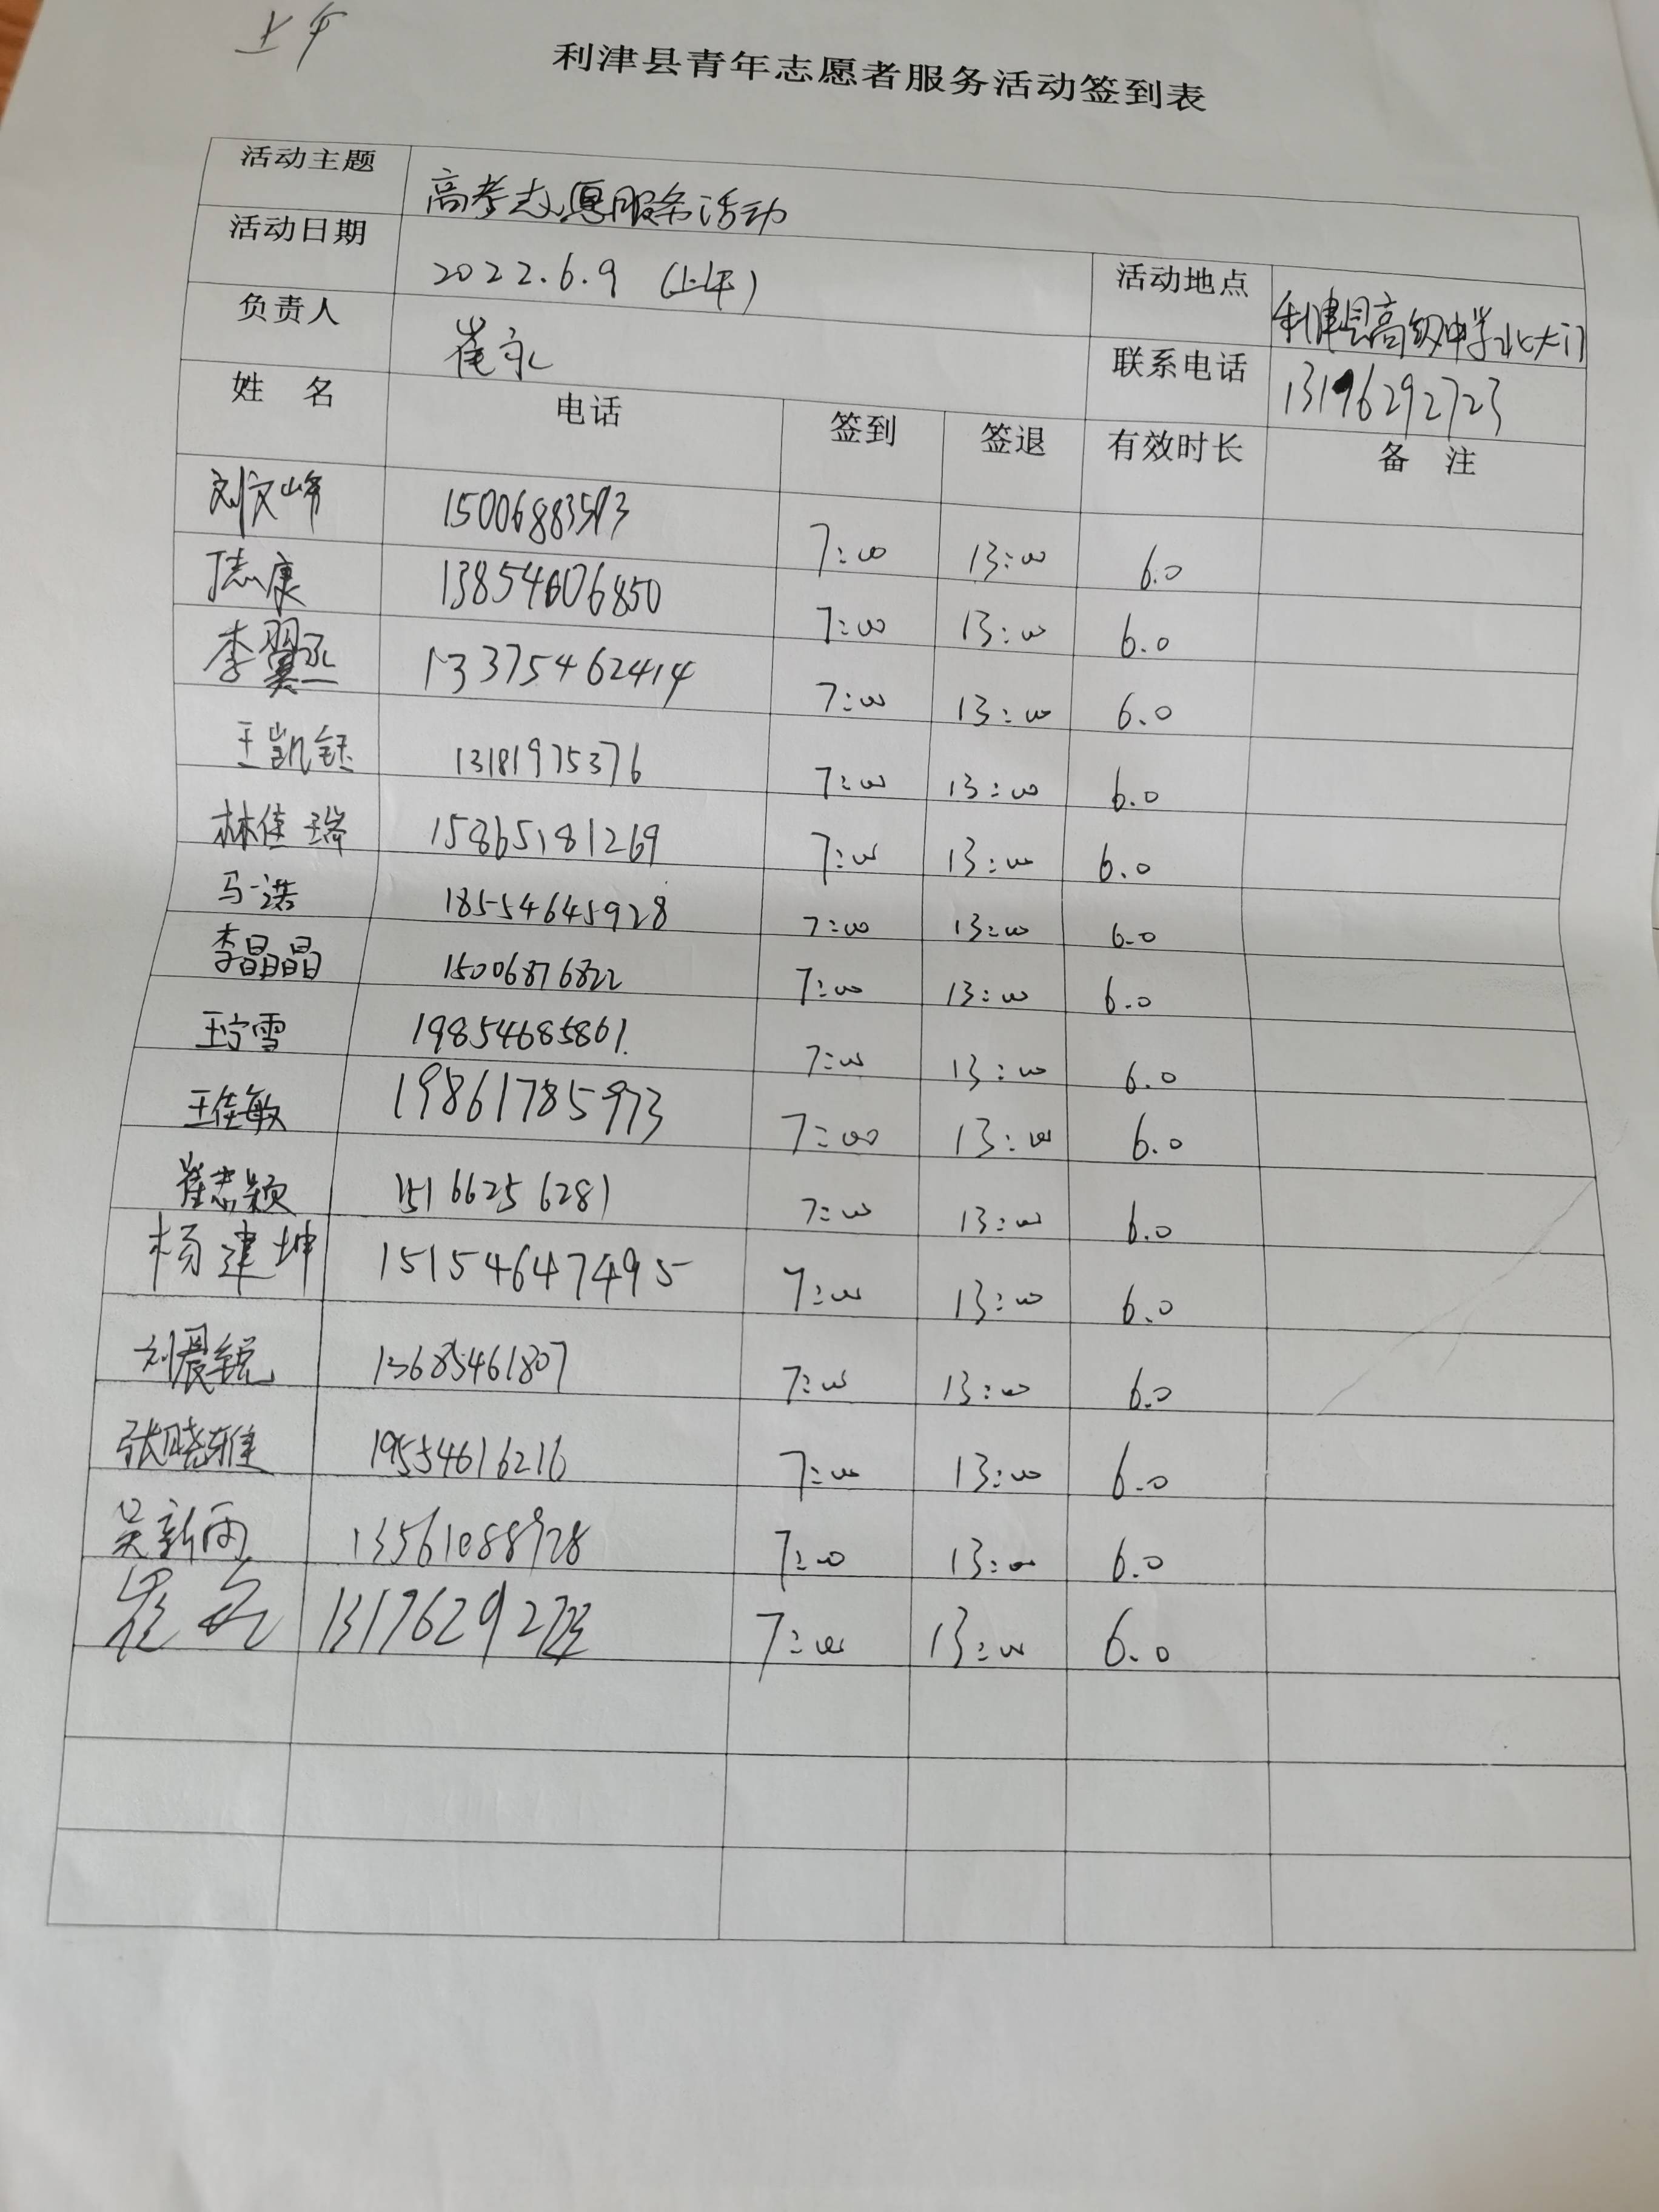 上午
利津县青年志愿者服务活动签到表
活动主题 高考志愿服务活动
活动日期 2022.6.9 (上午) 活动地点 利津县高级中学北大门
负责人 崔永 联系电话 13176292723
姓 名 电话 签到 签退 有效时长 备 注
刘文峰 15006883593 7:00 13:00 6.0
丁志康 13854606850 7:00 13:00 6.0
李翼丞 13375462414 7:00 13:00 6.0
王凯钰 13181975376 7:00 13:00 6.0
林佳瑞 15865181269 7:00 13:00 6.0
马一诺 18554645928 7:00 13:00 6.0
李晶晶 15006876822 7:00 13:00 6.0
王宁雪 19854685861. 7:00 13:00 6.0
王佳敏 19861785973 7:00 13:00 6.0
崔志颖 15166256281 7:00 13:00 6.0
杨建坤 15154647495 7:00 13:00 6.0
刘晨锐 13685461807 7:00 13:00 6.0
张晓雅 19554616216 7:00 13:00 6.0
吴新雨 13561088928 7:00 13:00 6.0
崔永 13176292723 7:00 13:00 6.0